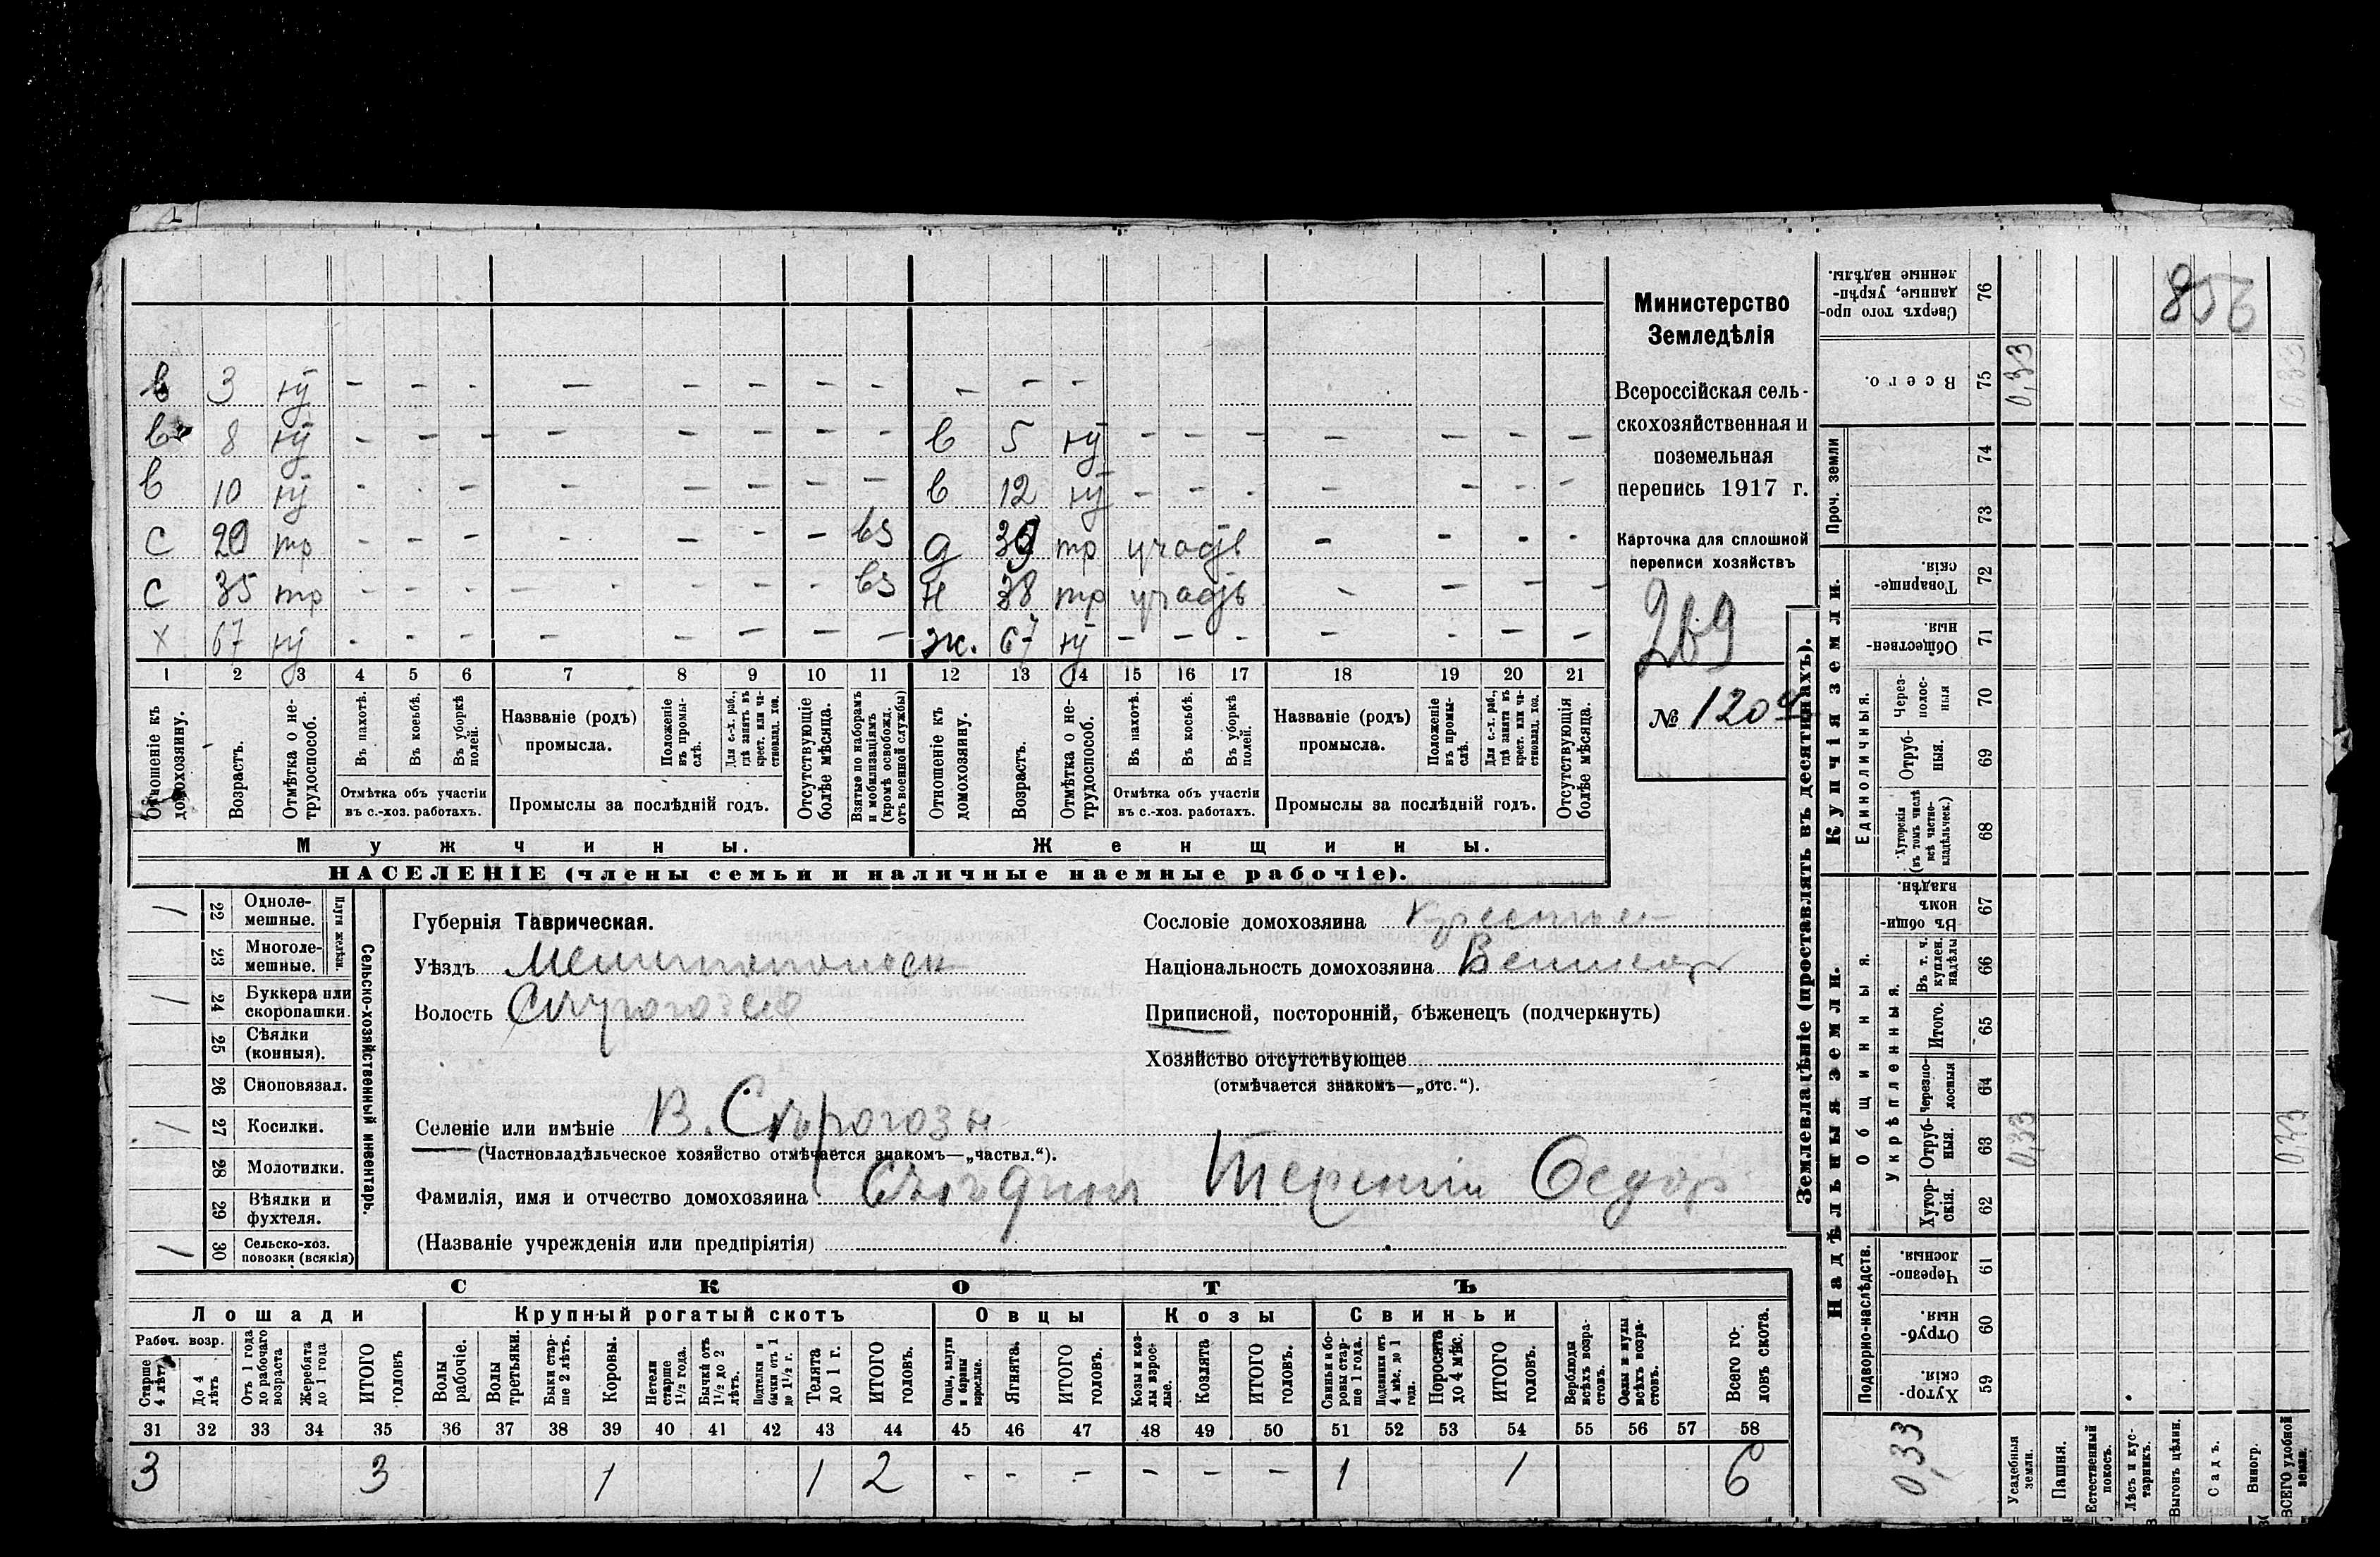 856
в 3 нт — — — — — — — — — — —
в 8 нт — — — — — — — — в 5 нт — — — — — — —
в 10 нт — — — — — — — — в 12 нт — — — — — — —
с 20 тр — — — — — — — вз д 39 тр участв — — — —
с 35 тр — — — — — — — вз н 38 тр участв — — — —
х 67 нт — — — — — — — — ж. 67 нт — — — — — — —
1 2 3 4 5 6 7 8 9 10 11 12 13 14 15 16 17 18 19 20 21
Отношеніе къ домохозяину.
Возрастъ.
Отмѣтка о нетрудоспособ.
Въ пахотѣ.
Въ косьбѣ.
Въ уборкѣ полей.
Отмѣтка объ участіи
въ с.-хоз. работахъ.
Названіе (родъ)
промысла.
Положеніе въ промыслѣ.
Для с.-х. раб., гдѣ занятъ въ крест. или частновлад. хоз.
Промыслы за послѣдній годъ.
Отсутствующіе болѣе мѣсяца.
Взятые по наборамъ и мобилизаціямъ (кромѣ освобожд. отъ военной службы)
Отношеніе къ домохозяину.
Возрастъ.
Отмѣтка о нетрудоспособ.
Въ пахотѣ.
Въ косьбѣ.
Въ уборкѣ полей.
Отмѣтка объ участіи
въ с.-хоз. работахъ.
Названіе (родъ)
промысла.
Положеніе въ промыслѣ.
Для с.-х. раб., гдѣ занята въ крест. или частновлад. хоз.
Промыслы за послѣдній годъ.
Отсутствующія болѣе мѣсяца.
Мужчины. Женщины.
НАСЕЛЕНІЕ (члены семьи и наличные наемные рабочіе).
Министерство
Земледѣлія
Всероссійская сель-
скохозяйственная и
поземельная
перепись 1917 г.
Карточка для сплошной
переписи хозяйствъ
269
№ 120
Сельско-хозяйственный инвентарь.
Плуги желѣзн.
22 Однолемешные. 1
23 Многолемешные.
24 Буккера или скоропашки. 1
25 Сѣялки (конныя).
26 Сноповязал.
27 Косилки. 1
28 Молотилки.
29 Вѣялки и фухтеля.
30 Сельско-хоз. повозки (всякія) 1
Губернія Таврическая.
Уѣздъ Мелитопольск
Волость
Селеніе или имѣніе В. Сѣрогозы
(Частновладѣльческое хозяйство отмѣчается знакомъ—„частвл.“).
Фамилія, имя и отчество домохозяина Терентій Федор
(Названіе учрежденія или предпріятія)
Сословіе домохозяина
Національность домохозяина
Приписной, посторонній, бѣженецъ (подчеркнуть)
Хозяйство отсутствующее
(отмѣчается знакомъ—„отс.“).
СКОТЪ
Лошади Крупный рогатый скотъ Овцы Козы Свиньи
Рабоч. возр.
Старше 4 лѣтъ
До 4 лѣтъ
Отъ 1 года до рабочаго возраста
Жеребята до 1 года
ИТОГО головъ
Волы рабочіе.
Волы третьяки.
Быки старше 2 лѣтъ.
Коровы.
Нетели старше 1½ года.
Бычки отъ 1½ до 2 лѣтъ.
Подтелки и бычки отъ 1 до 1½ г.
Телята до 1 г.
ИТОГО головъ.
Овцы, валухи и бараны взрослые.
Ягнята.
ИТОГО головъ.
Козы и козлы взрослые.
Козлята
ИТОГО головъ.
Свиньи и боровы старше 1 года.
Подсвинки отъ 4 мѣс. до 1 года.
Поросята до 4 мѣс.
ИТОГО головъ.
Верблюды всѣхъ возрастовъ.
Ослы и мулы всѣхъ возрастовъ.
Всего головъ скота.
31 32 33 34 35 36 37 38 39 40 41 42 43 44 45 46 47 48 49 50 51 52 53 54 55 56 57 58
3 3 1 1 2 - - - - - - 1 1 6
Землевладѣніе (проставлять въ десятинахъ).
Надѣльныя земли. Купчія земли. Проч. земли
Подворно-наслѣдств.
Общинныя.
Укрѣпленныя.
Единоличныя.
59 Хуторскія.
60 Отрубныя.
61 Черезполосныя.
62 Хуторскія.
63 Отрубныя. 0,33 0,33
64 Черезполосныя
65 Итого.
66 Въ т. ч. куплен. надѣлы
67 Въ общинномъ владѣн.
68 Хуторскія (въ томъ числѣ всѣ частновладѣльческ.)
69 Отрубныя.
70 Черезполосныя
71 Общественныя.
72 Товарищескія.
73
74
75 Всего. 0,33 0,33
76 Сверхъ того проданные, укрѣпленные надѣлы.
0,33
Усадебныя земли.
Пашня.
Естественный покосъ.
Лѣсъ и кустарникъ.
Выгонъ цѣлин.
Садъ.
Виногр.
ВСЕГО удобной земли.